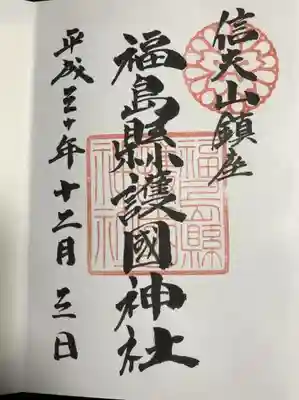 信夫山鎮座
福島縣護國神社
平成三十年十二月三日
福島縣
神社